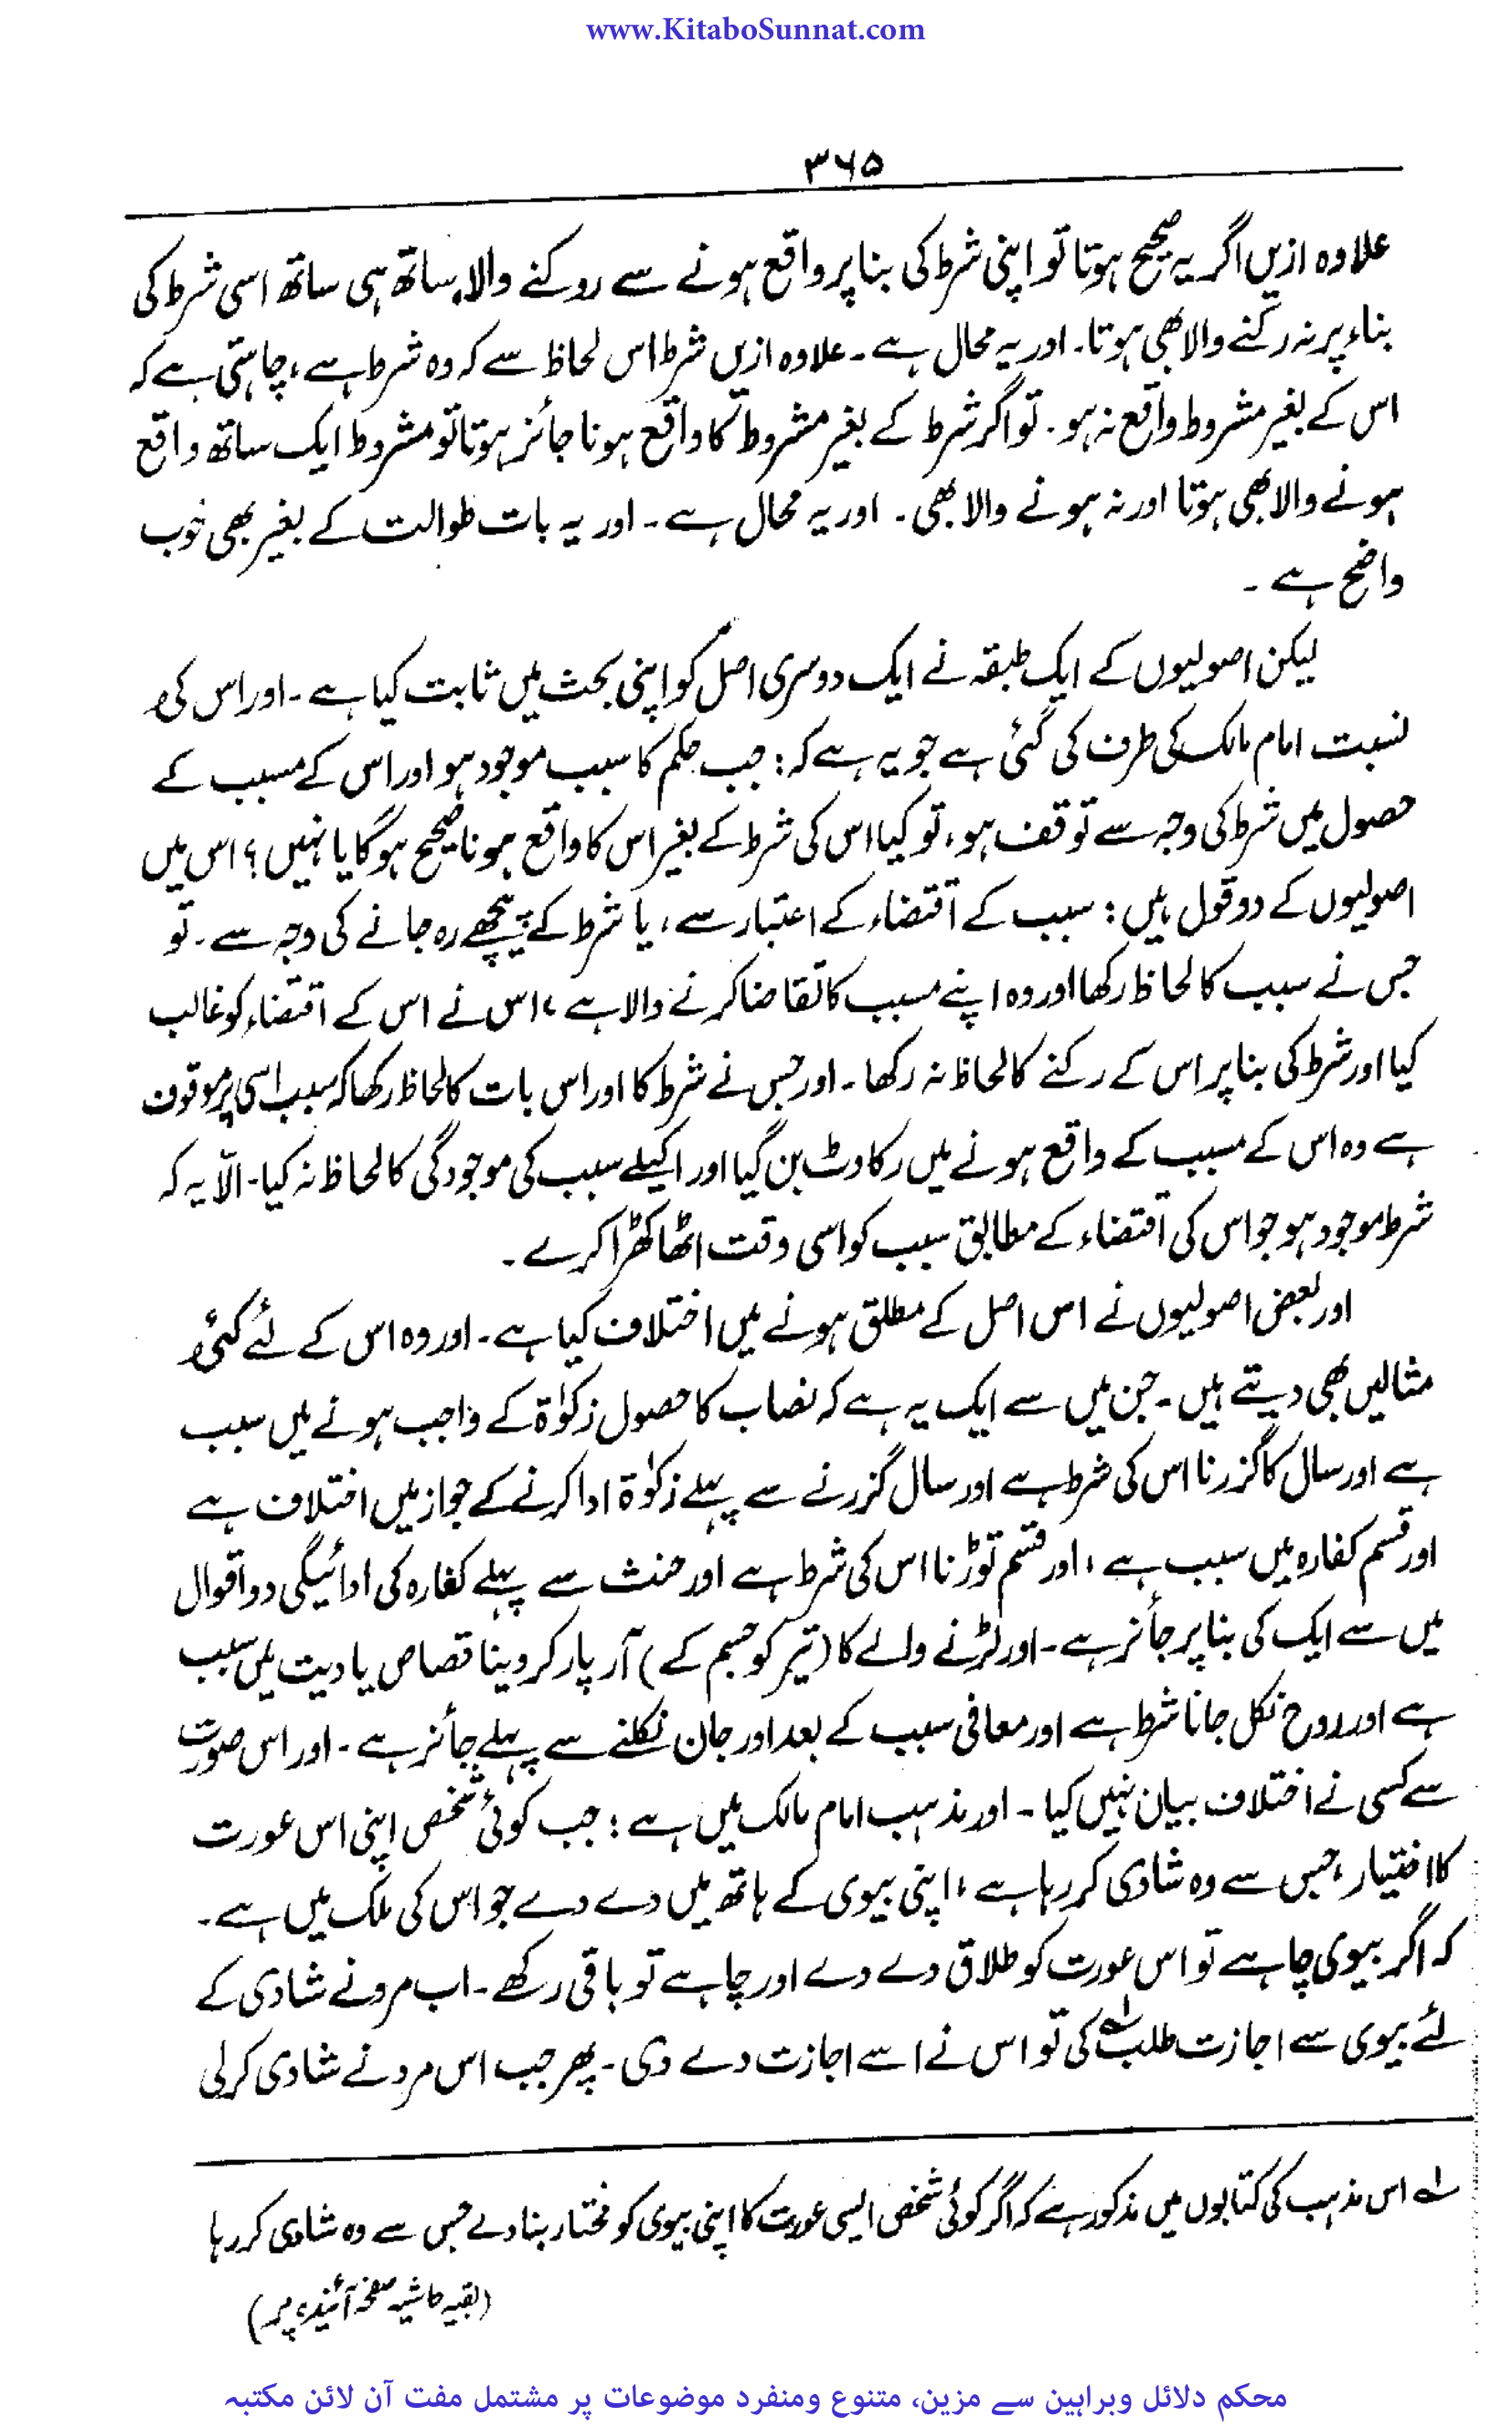 www.KitaboSunnat.com
۳۶۵
علاوہ ازیں اگر یہ صحیح ہوتا تو اپنی شرط کی بنا پر واقع ہونے سے روکنے والا، ساتھ ہی ساتھ اسی شرط کی
بناء پر نہ رکنے والا بھی ہوتا۔ اور یہ محال ہے۔ علاوہ ازیں شرط اس لحاظ سے کہ وہ شرط ہے، چاہتی ہے کہ
اس کے بغیر مشروط واقع نہ ہو۔ تو اگر شرط کے بغیر مشروط کا واقع ہونا جائز ہوتا تو مشروط ایک ساتھ واقع
ہونے والا بھی ہوتا اور نہ ہونے والا بھی۔ اور یہ محال ہے۔ اور یہ بات طوالت کے بغیر بھی خوب
واضح ہے۔
لیکن اصولیوں کے ایک طبقہ نے ایک دوسری اصل کو اپنی بحث میں ثابت کیا ہے۔ اور اس کی
نسبت امام مالک کی طرف کی گئی ہے جو یہ ہے کہ: جب حکم کا سبب موجود ہو اور اس کے مسبب کے
حصول میں شرط کی وجہ سے توقف ہو، تو کیا اس کی شرط کے بغیر اس کا واقع ہونا صحیح ہوگا یا نہیں؟ اس میں
اصولیوں کے دو قول ہیں: سبب کے اقتضاء کے اعتبار سے، یا شرط کے پیچھے رہ جانے کی وجہ سے۔ تو
جس نے سبب کا لحاظ رکھا اور وہ اپنے مسبب کا تقاضا کرنے والا ہے، اس نے اس کے اقتضاء کو غالب
کیا اور شرط کی بنا پر اس کے رکنے کا لحاظ نہ رکھا۔ اور جس نے شرط کا اور اس بات کا لحاظ رکھا کہ سبب اسی پر موقوف
ہے وہ اس کے مسبب کے واقع ہونے میں رکاوٹ بن گیا اور اکیلے سبب کی موجودگی کا لحاظ نہ کیا۔ الّا یہ کہ
شرط موجود ہو جو اس کی اقتضاء کے مطابق سبب کو اسی وقت اٹھا کھڑا کرے۔
اور بعض اصولیوں نے اس اصل کے مطلق ہونے میں اختلاف کیا ہے۔ اور وہ اس کے لئے کئی
مثالیں بھی دیتے ہیں۔ جن میں سے ایک یہ ہے کہ نصاب کا حصول زکوٰۃ کے واجب ہونے میں سبب
ہے اور سال کا گزرنا اس کی شرط ہے اور سال گزرنے سے پہلے زکوٰۃ ادا کرنے کے جواز میں اختلاف ہے
اور قسم کفارہ میں سبب ہے، اور قسم توڑنا اس کی شرط ہے اور حنث سے پہلے کفارہ کی ادائیگی دو اقوال
میں سے ایک کی بنا پر جائز ہے۔ اور لڑنے والے کا (تیر کو جسم کے) آر پار کر دینا قصاص یا دیت میں سبب
ہے اور روح نکل جانا شرط ہے اور معافی سبب کے بعد اور جان نکلنے سے پہلے جائز ہے۔ اور اس صورت
سے کسی نے اختلاف بیان نہیں کیا۔ اور مذہب امام مالک میں ہے: جب کوئی شخص اپنی اس عورت
کا اختیار، جس سے وہ شادی کر رہا ہے، اپنی بیوی کے ہاتھ میں دے دے جو اس کی ملک میں ہے۔
کہ اگر بیوی چاہے تو اس عورت کو طلاق دے دے اور چاہے تو باقی رکھے۔ اب مرد نے شادی کے
لئے بیوی سے اجازت طلب کی تو اس نے اسے اجازت دے دی۔ پھر جب اس مرد نے شادی کرلی
؎ اس مذہب کی کتابوں میں مذکور ہے کہ اگر کوئی شخص ایسی عورت کا اپنی بیوی کو مختار بنا دے جس سے وہ شادی کر رہا
(بقیہ حاشیہ صفحہ آئندہ پر)
محکم دلائل وبراہین سے مزین، متنوع ومنفرد موضوعات پر مشتمل مفت آن لائن مکتبہ